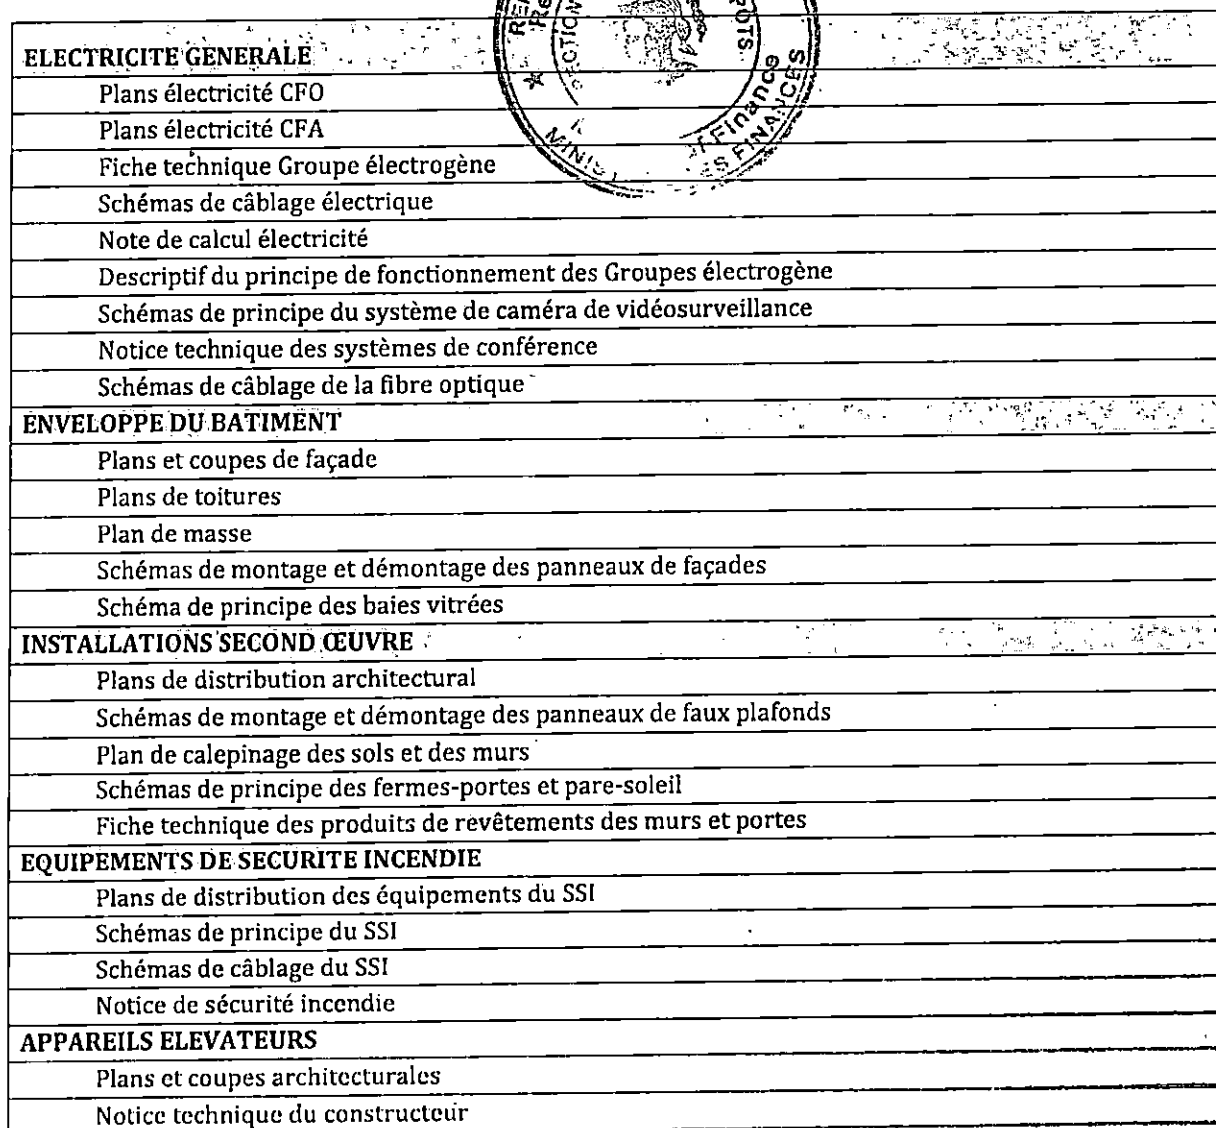 ELECTRICITE GENERALE
Plans électricité CFO
Plans électricité CFA
Fiche technique Groupe électrogène
Schémas de câblage électrique
Note de calcul électricité
Descriptif du principe de fonctionnement des Groupes électrogène
Schémas de principe du système de caméra de vidéosurveillance
Notice technique des systèmes de conférence
Schémas de câblage de la fibre optique
ENVELOPPE DU BATIMENT
Plans et coupes de façade
Plans de toitures
Plan de masse
Schémas de montage et démontage des panneaux de façades
Schéma de principe des baies vitrées
INSTALLATIONS SECOND ŒUVRE
Plans de distribution architectural
Schémas de montage et démontage des panneaux de faux plafonds
Plan de calepinage des sols et des murs
Schémas de principe des fermes-portes et pare-soleil
Fiche technique des produits de revêtements des murs et portes
EQUIPEMENTS DE SECURITE INCENDIE
Plans de distribution des équipements du SSI
Schémas de principe du SSI
Schémas de câblage du SSI
Notice de sécurité incendie
APPAREILS ELEVATEURS
Plans et coupes architecturales
Notice technique du constructeur